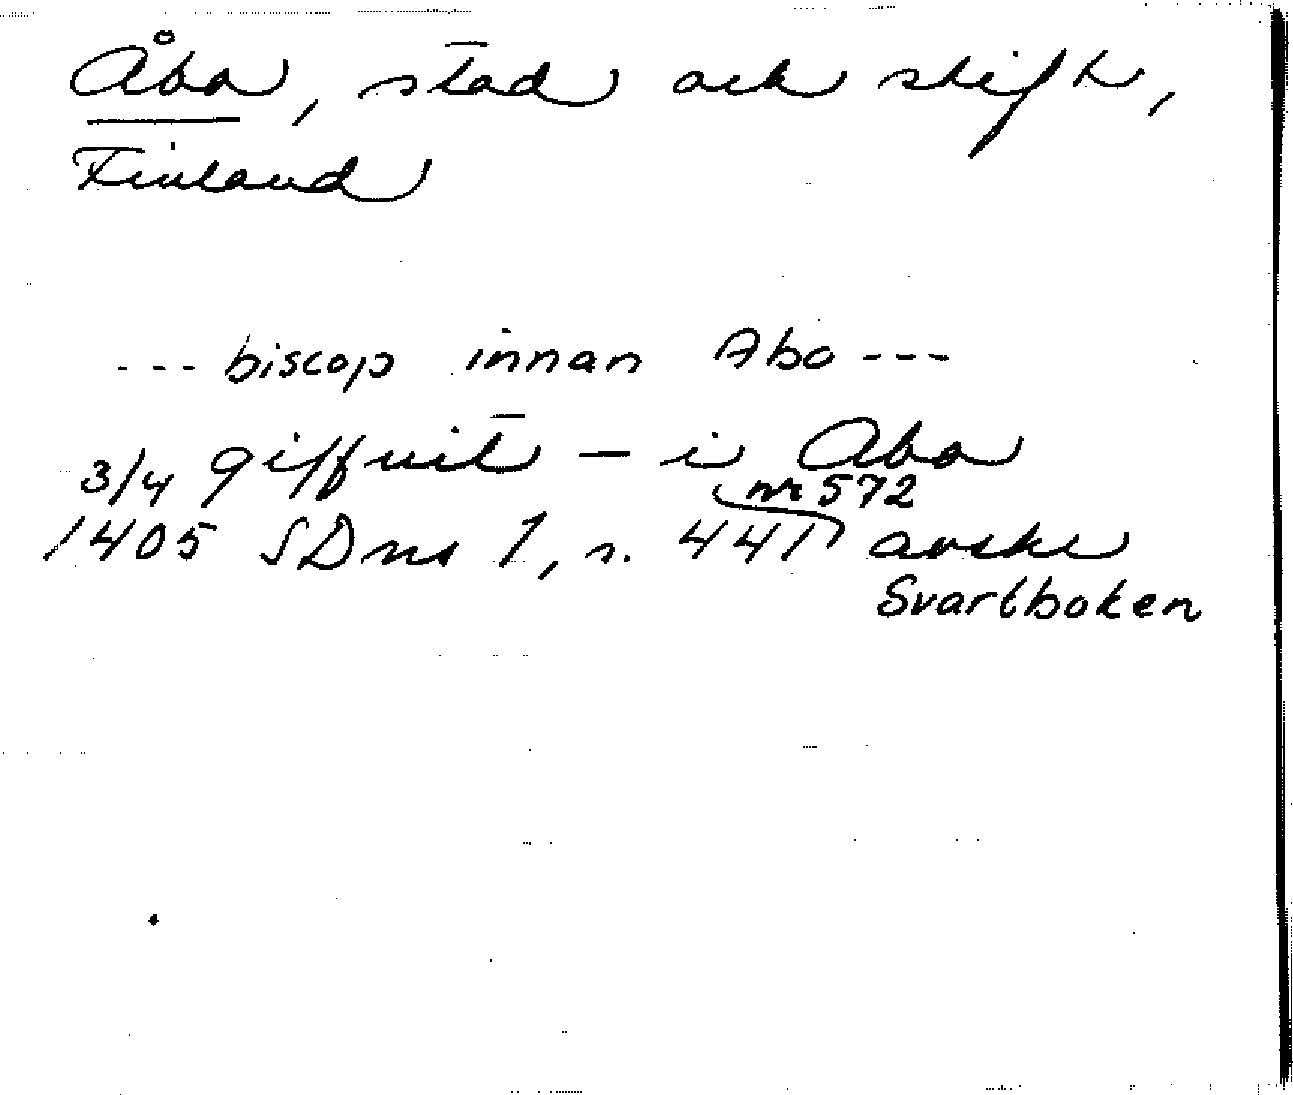 Åbo, stad och stift,
Finland
--- biscop innan Abo ---
3/4 giffuit - i Abo
nr 572
1405 SDns 1, s. 441 avskr
Svartboken